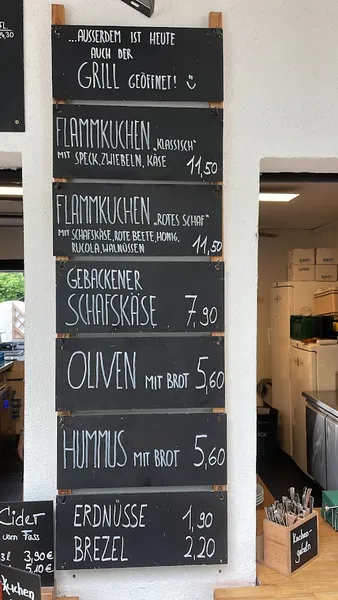 ...AUSSERDEM IST HEUTE
AUCH DER
GRILL GEÖFFNET!
FLAMMKUCHEN „KLASSISCH"
MIT SPECK, ZWIEBELN, KÄSE 11,50
FLAMMKUCHEN „ROTES SCHAF"
MIT SCHAFSKÄSE, ROTE BEETE, HONIG,
RUCOLA, WALNÜSSEN 11,50
GEBACKENER
SCHAFSKÄSE 7,90
OLIVEN MIT BROT 5,60
HUMMUS MIT BROT 5,60
ERDNÜSSE 1,90
BREZEL 2,20
Cider
vom Fass
3,90€
5,10€
Kuchen
Kuchen-
gabeln